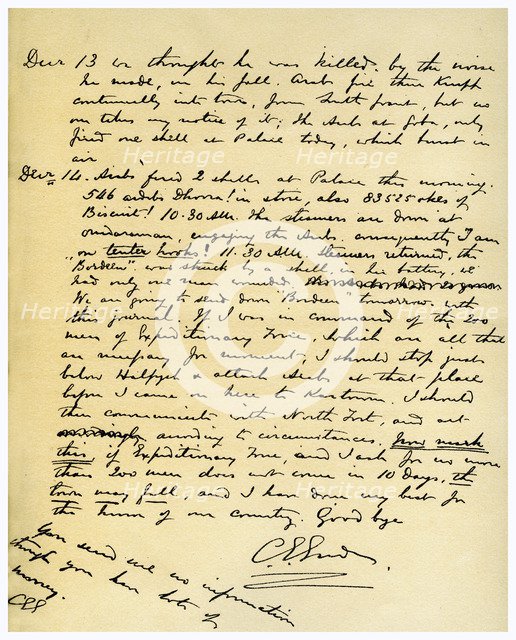 Decr 13 we thought he was killed. by the noise
he made, in his fall. Arabs fire their Krupps
continually into town, from South front, but no
one takes any notice of it; the Arabs at Goba, only
fired one shell at Palace today, which burst in
air
Decr 14. Arabs fired 2 shells at Palace this morning.
546 ardebs Dhoora! in store, also 83525 okes of
Biscuit! 10.30 AM. The steamers are down at
Omdurman, engaging the Arabs, consequently I am
on tenter hooks! 11.30 AM. Steamers returned, the
"Bordeen" was struck by a shell, in her battery, we
had only one man wounded.
We are going to send down "Bordeen" tomorrow. with
this journal. If I was in command of the 200
men of Expeditionary Force, which are all that
are necessary for moment, I should stop just
below Halfyeh & attack Arabs at that place
before I came on here to Kartoum. I should
then communicate with North Fort, and act
according to circumstances. Now mark
this, if Expeditionary Force, and I ask for no more
than 200 men does not come in 10 Days, the
town may fall, and I have done my best for
the honor of our country. Good bye
C G Gordon.
You send me no information
though you have lots of
money.
CGG
Heritage
Heritage
Heritage
Heritage
Heritage
Heritage
Images
Images
Images